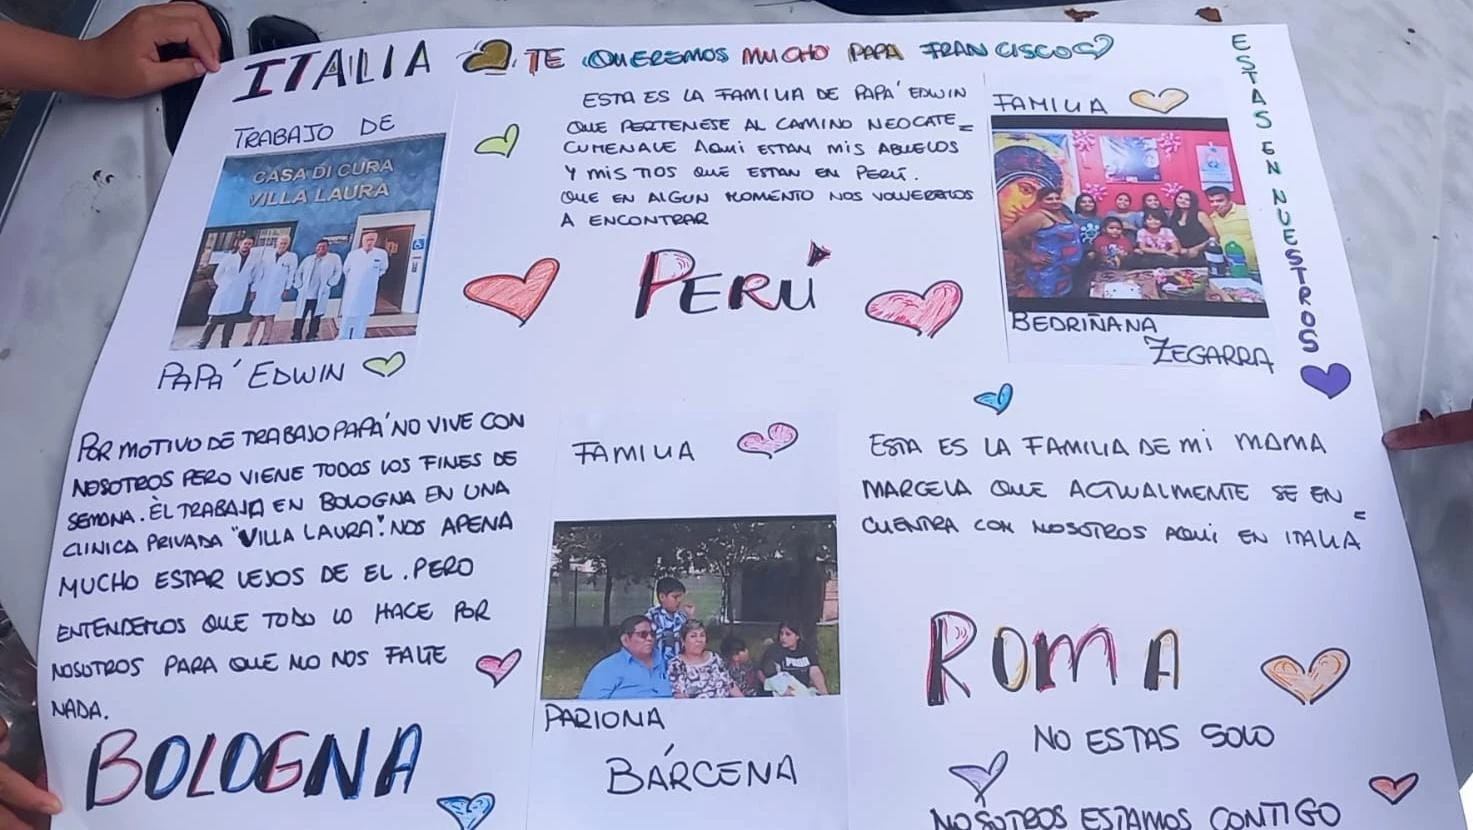 ITALIA TE QUEREMOS MUCHO PAPA FRANCISCO
TRABAJO DE
CASA DI CURA
VILLA LAURA
PAPÁ EDWIN
ESTA ES LA FAMILIA DE PAPÁ EDWIN
QUE PERTENESE AL CAMINO NEOCATE=
CUMENALE AQUI ESTAN MIS ABUELOS
Y MIS TIOS QUE ESTAN EN PERÚ.
QUE EN ALGUN MOMENTO NOS VOLVEREMOS
A ENCONTRAR
PERÚ
FAMILIA
BEDRIÑANA
ZEGARRA
ESTAS EN NUESTROS
POR MOTIVO DE TRABAJO PAPÁ NO VIVE CON
NOSOTROS PERO VIENE TODOS LOS FINES DE
SEMANA. ÈL TRABAJA EN BOLOGNA EN UNA
CLINICA PRIVADA "VILLA LAURA". NOS APENA
MUCHO ESTAR LEJOS DE EL. PERO
ENTENDEMOS QUE TODO LO HACE POR
NOSOTROS PARA QUE NO NOS FALTE
NADA.
BOLOGNA
FAMILIA
PARIONA
BÁRCENA
ESTA ES LA FAMILIA DE MI MAMA
MARCELA QUE ACTUALMENTE SE EN=
CUENTRA CON NOSOTROS AQUI EN ITALIA
ROMA
NO ESTAS SOLO
NOSOTROS ESTAMOS CONTIGO